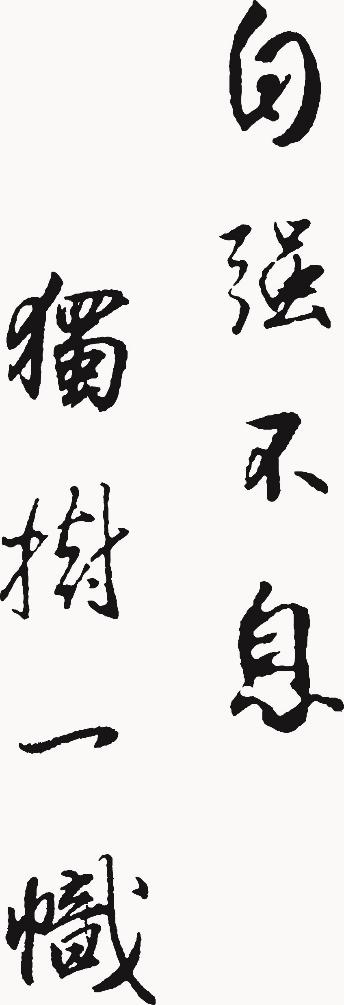 自强不息
獨樹一幟